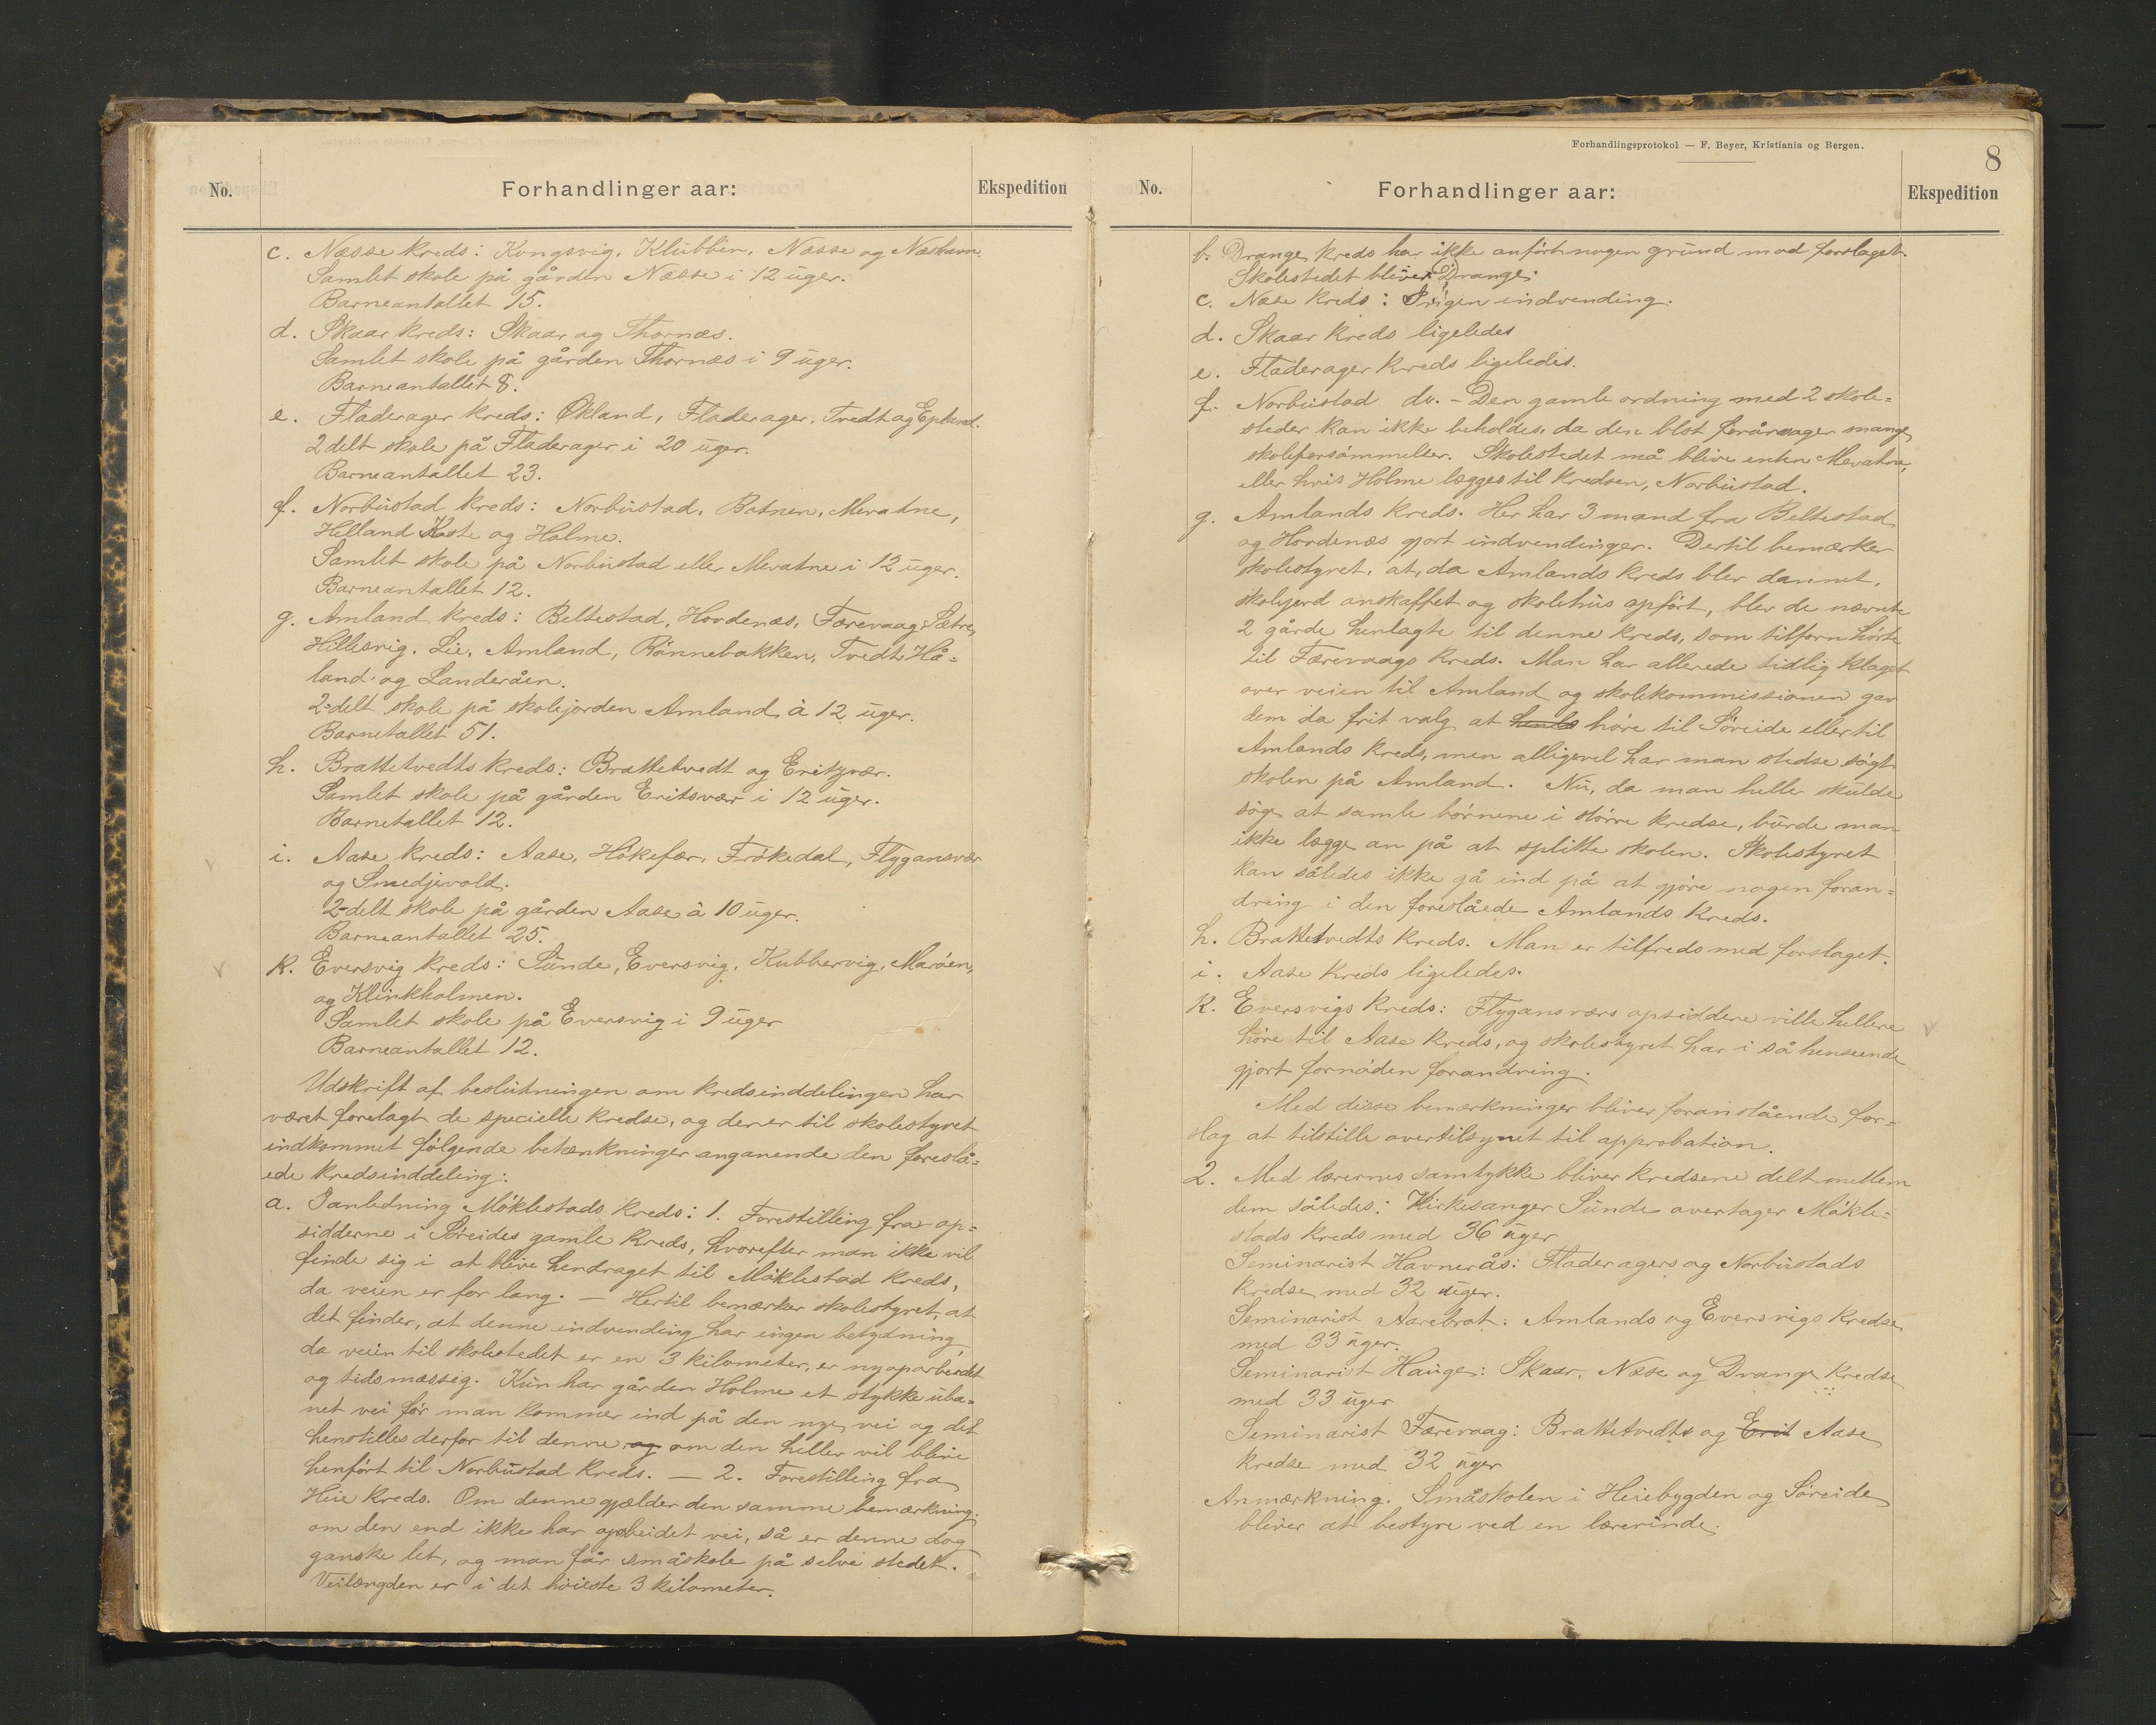 No.
Forhandlinger aar:
Ekspedition
c. Næsse kreds: Kongsvig, Klubben, Næsse og Næshavn.
Samlet skole på gården Næsse i 12 uger.
Barneantallet 15.
d. Skaar kreds: Skaar og Thornæs.
Samlet skole på gården Thornæs i 9 uger.
Barneantallet 8.
e. Fladerager kreds: Økland, Fladerager, Tvedt og Epland.
2 delt skole på Fladerager i 20 uger.
Barneantallet 23.
f. Norbustad kreds: Norbustad, Botnen, Mevatne,
Helland Koste og Holme.
Samlet skole på Norbustad eller Mevatne i 12 uger.
Barneantallet 12.
g. Amland kreds: Beltestad, Hovdenæs, Færevaag, Sætre,
Hillesvig, Lie, Amland, Rönnebakken, Tvedt, Hå-
land og Landeråen.
2-delt skole på skolejorden Amland à 12 uger.
Barnetallet 51.
h. Brattetvedts kreds: Brattetvedt og Eritzvær.
Samlet skole på gården Eritsvær i 12 uger.
Barnetallet 12.
i. Aase kreds: Aase, Håkefær, Frökedal, Flygansvær
og Smedjevold.
2-delt skole på gården Aase à 10 uger.
Barneantallet 25.
k. Eversvig kreds: Sunde, Eversvig, Kubbervig, Maröen,
og Klinkholmen.
Samlet skole på Eversvig i 9 uger
Barneantallet 12.
Udskrift af beslutningen om kredsinddelingen har
været forelagt de specielle kredse, og der er til skolestyret
indkommet følgende betænkninger angaaende den foreslå-
ede kredsinddeling:
a. I anledning Möklestads kreds: 1. Forestilling fra op-
sidderne i Söreides gamle kreds, hvorefter man ikke vil
finde sig i at blive hendraget til Möklestad kreds,
da veien er for lang. — Hertil bemærker skolestyret, at
det finder, at denne indvending har ingen betydning
da veien til skolestedet er en 3 kilometer, er nyoparbeidet
og tidsmæssig. Kun har gården Holme et stykke uba-
net vei för man kommer ind på den nye vei og det
henstilles derfor til denne og om den heller vil blive
henfört til Norbustad kreds. — 2. Forestilling fra
Heie kreds. Om denne gjælder den samme bemærkning;
om den end ikke har opbeidet vei, så er denne dog
ganske let, og man får småskole på selve stedet.
Veilængden er i det höieste 3 kilometer.
Forhandlingsprotokol — F. Beyer, Kristiania og Bergen.
8
No.
Forhandlinger aar:
Ekspedition
b. Drange kreds har ikke anfört nogen grund mod forslaget.
Skolestedet bliver Drange.
c. Næse kreds: Ingen indvending.
d. Skaar kreds ligeledes
e. Fladerager kreds ligeledes.
f. Norbustad do. - Den gamle ordning med 2 skole-
steder kan ikke beholdes, da den blot forårsager mange
skoleforsömmelser. Skolestedet må blive enten Mevatne,
eller hvis Holme lægges til kredsen, Norbustad.
g. Amlands kreds. Her har 3 mænd fra Beltestad
og Hovdenæs gjort indvendinger. Dertil bemærker
skolestyret, at, da Amlands kreds blev dannet,
skolejord anskaffet og skolehus opfört, blev de nævnte
2 gårde henlagte til denne kreds, som tilforn hörte
til Færevaags kreds. Man har allerede tidlig klaget
over veien til Amland og skolekommissionen gav
dem da frit valg at henlæ höre til Söreide eller til
Amlands kreds, men alligevel har man stedse sögt
skolen på Amland. Nu, da man heller skulde
söge at samle börnene i större kredse, burde man
ikke lægge an på at splitte skolen. Skolestyret
kan således ikke gå ind på at gjöre nogen foran-
dring i den foreslåede Amlands kreds.
h. Brattetvedts kreds. Man er tilfreds med forslaget.
i. Aase kreds ligeledes.
k. Eversvigs kreds: Flygansværs opsiddere ville hellere
höre til Aase kreds, og skolestyret har i så henseende
gjort fornöden forandring.
Med disse bemærkninger bliver foranstående for-
slag at tilstille overtilsynet til approbation.
2. Med lærernes samtykke bliver kredsene delt mellem
dem således: Kirkesanger Sunde overtager Mökle-
stads kreds med 36 uger
Seminarist Havnerås: Fladeragers og Norbustads
kredse med 32 uger.
Seminarist Aarebrot: Amlands og Eversvigs kredse
med 33 uger.
Seminarist Hauge: Skaar, Næse og Drange kredse
med 33 uger
Seminarist Færevaag: Brattetvedts og Erit Aase
kredse med 32 uger
Anmærkning. Småskolen i Heiebygden og Söreide
bliver at bestyre ved en lærerinde.